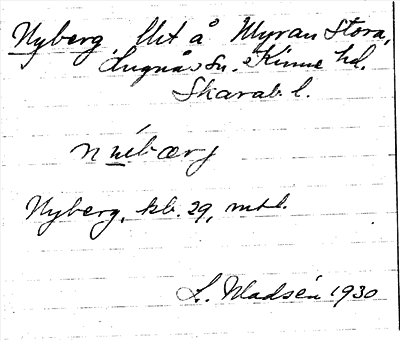 Nyberg, lht å Myran Stora,
Lugnås sn. Kinne hd.
Skarab. l.
nýbærj
Nyberg, kb. 29, mtl.
L. Madsén 1930